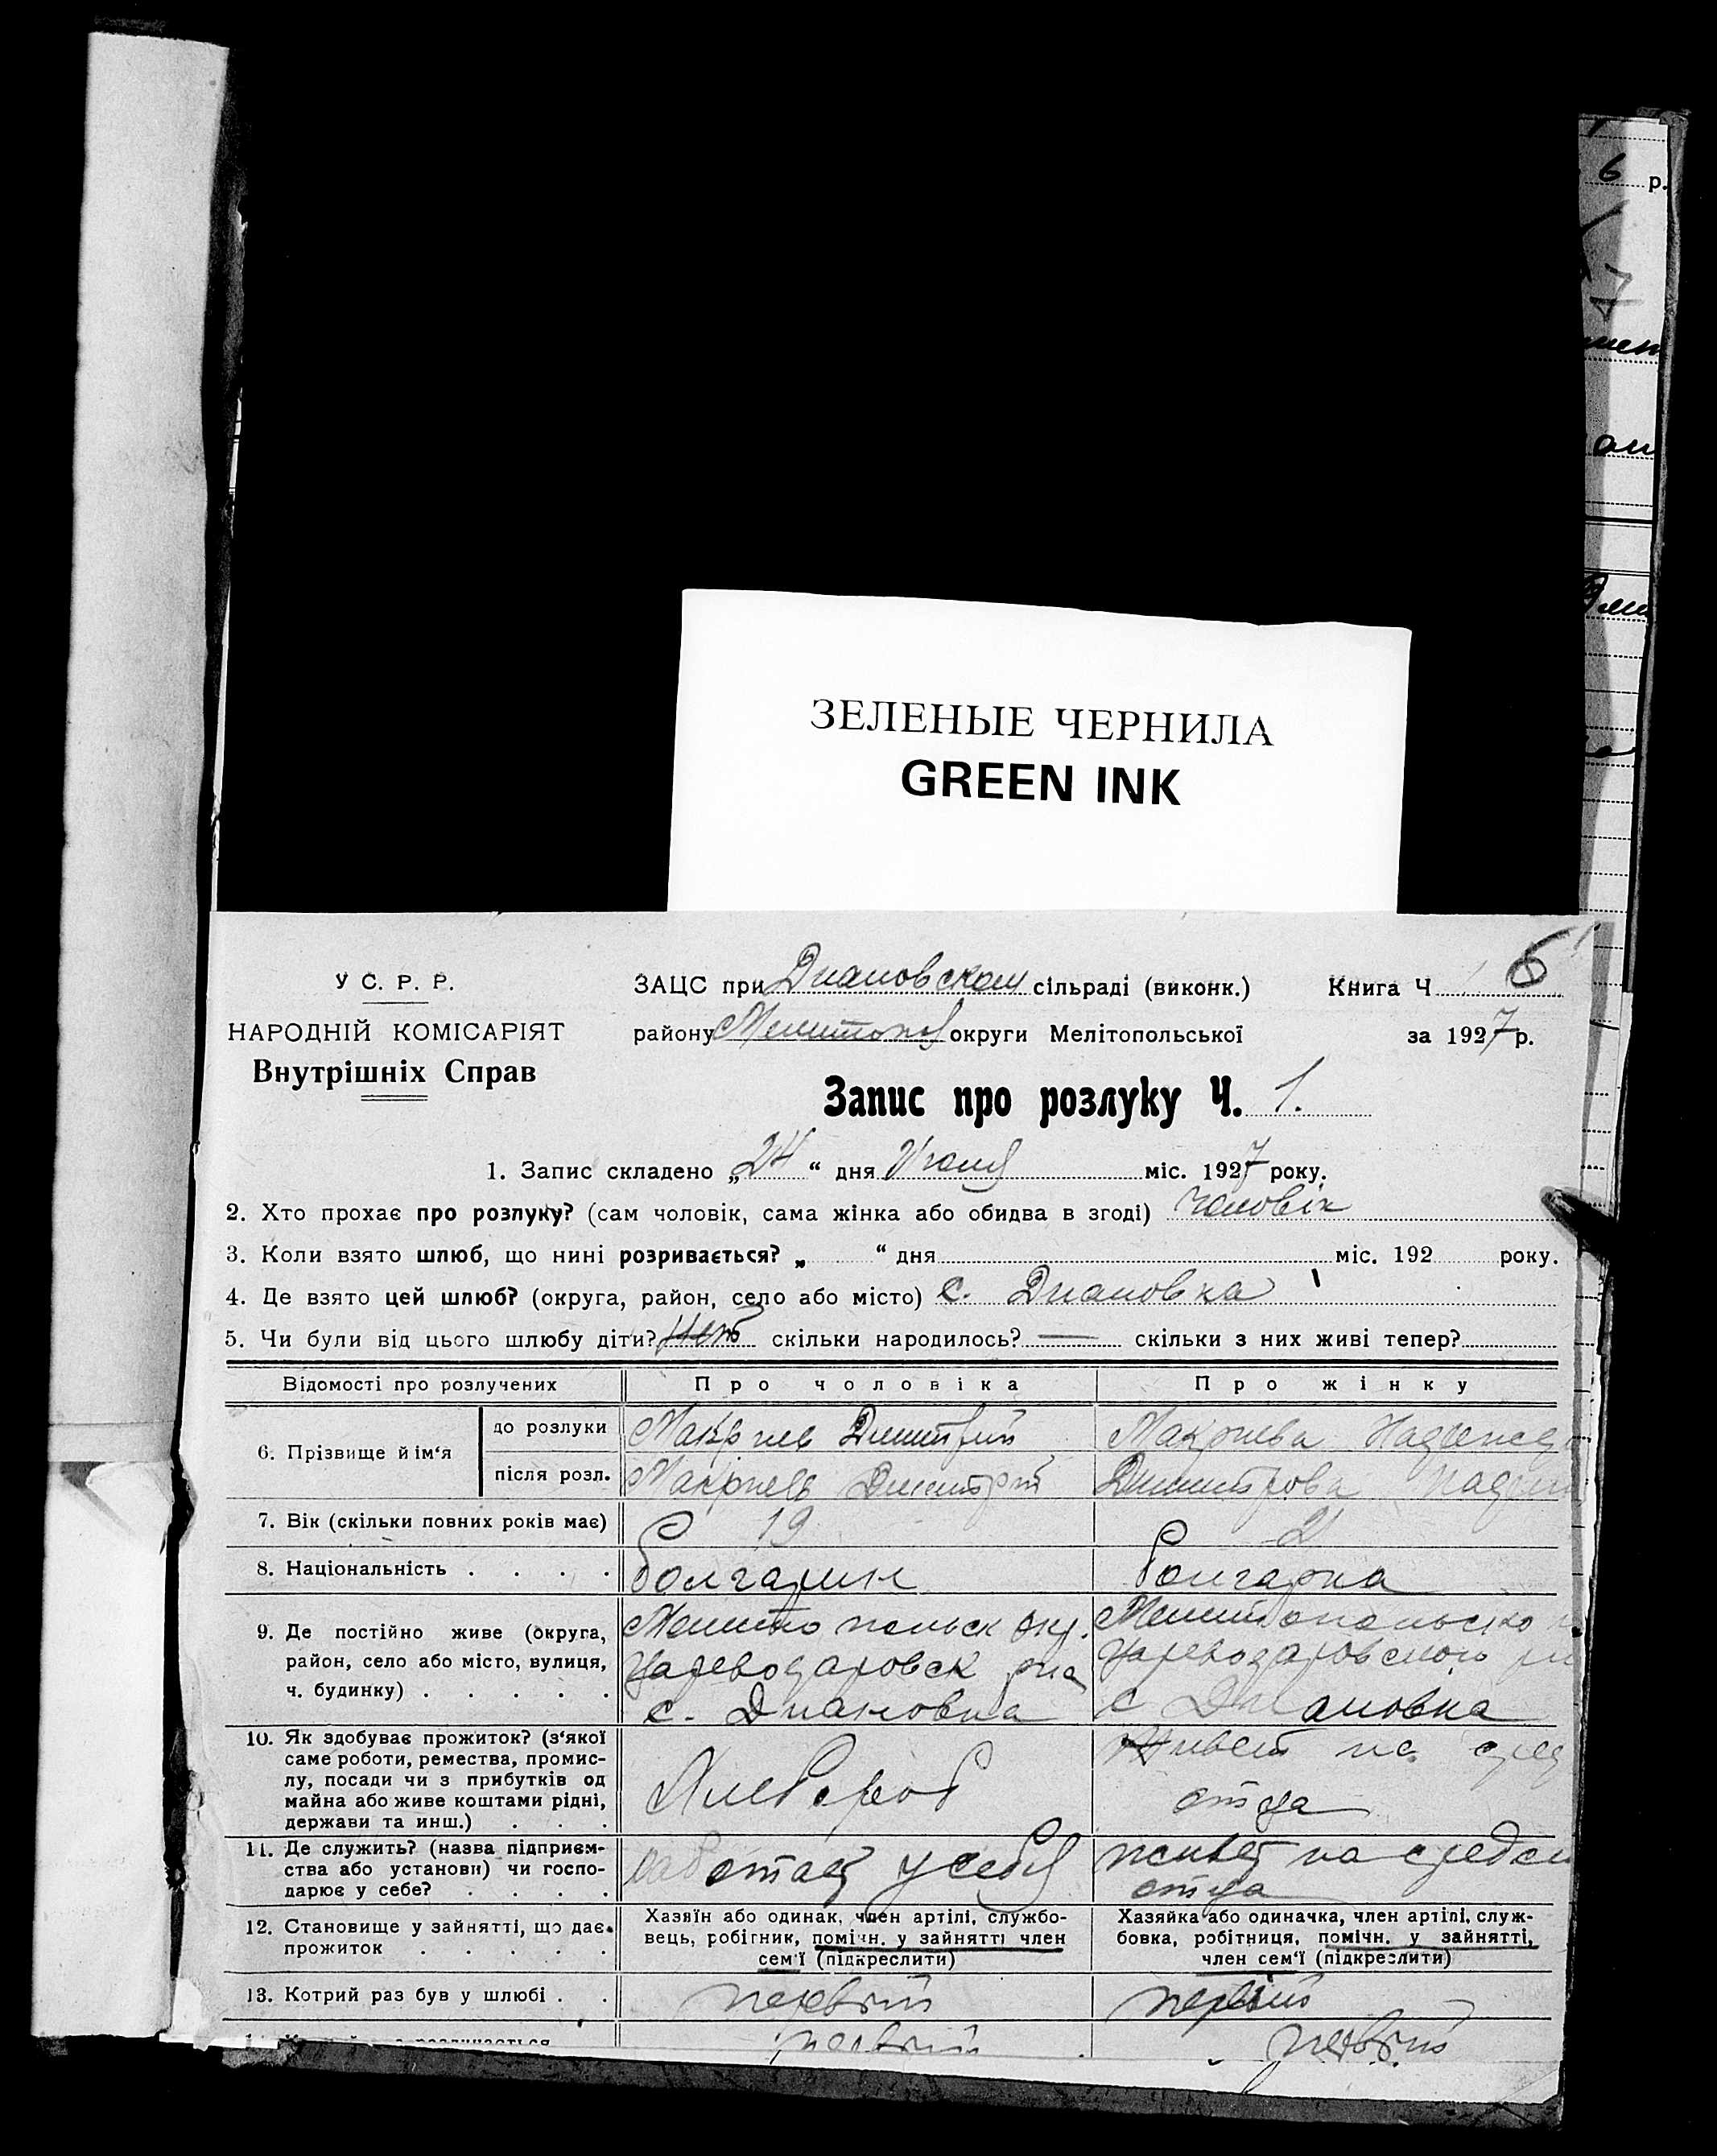 6 р.
ЗЕЛЕНЫЕ ЧЕРНИЛА
GREEN INK
6
У С. Р. Р.
ЗАЦС при Диановском сільраді (виконк.) Книга Ч
НАРОДНІЙ КОМІСАРІЯТ
району Мелитопол округи Мелітопольської за 1927 р.
Внутрішніх Справ
Запис про розлуку Ч. 1.
1. Запис складено „24“ дня міс. 1927 року.
2. Хто прохає про розлуку? (сам чоловік, сама жінка або обидва в згоді) Чоловік
3. Коли взято шлюб, що нині розривається? „ “ дня міс. 192 року.
4. Де взято цей шлюб? (округа, район, село або місто) с. Диановка
5. Чи були від цього шлюбу діти? Нет скільки народилось? — скільки з них живі тепер?
Відомості про розлучених Про чоловіка Про жінку
6. Прізвище й ім‘я
до розлуки Макриев Димитрий Макриева Надежда
після розл. Макриев Димитрий Димитрова Надеж
7. Вік (скільки повних років має) 19 21
8. Національність . . . . Болгарин Болгарка
9. Де постійно живе (округа, район, село або місто, вулиця, ч. будинку) . . . . .
Мелитопольск окр.
Цареводаровск р-на
с. Диановка
Мелитопольско
Цареводаровского
с Диановка
10. Як здобуває прожиток? (з‘якої
саме роботи, ремества, промис-
лу, посади чи з прибутків од
майна або живе коштами рідні,
держави та инш.) . . .
Хлебороб
Живет на сред
отца
11. Де служить? (назва підприєм-
ства або установи) чи госпо-
дарює у себе? . . . .
работает у себя
живет на средст
отца
12. Становище у зайнятті, що дає
прожиток . . . . .
Хазяїн або одинак, член артілі, службо-
вець, робітник, помічн. у зайнятті член
сем‘ї (підкреслити)
Хазяйка або одиначка, член артілі, служ-
бовка, робітниця, помічн. у зайнятті,
член сем‘ї (підкреслити)
13. Котрий раз був у шлюбі . . первый первый
первый первый